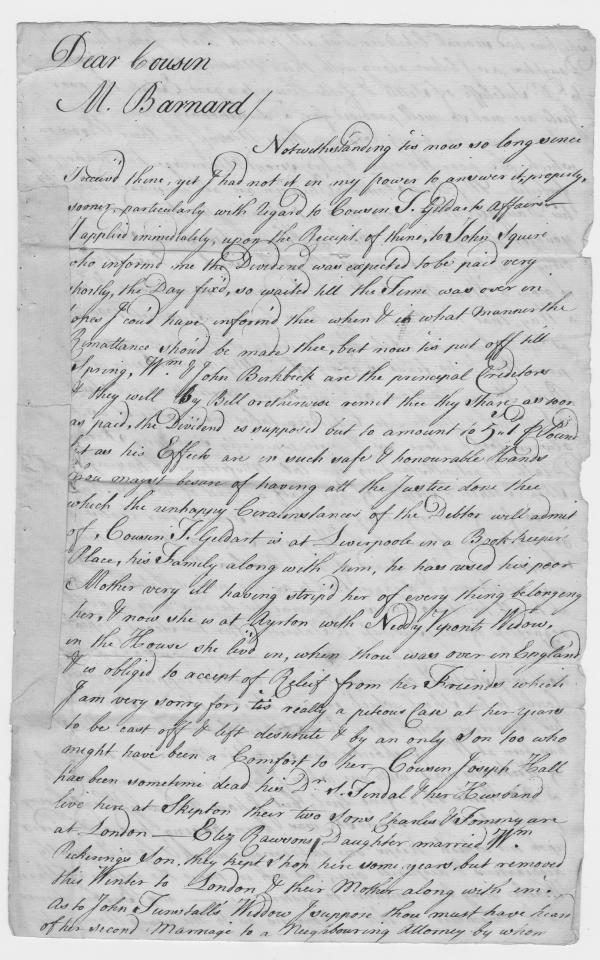 Dear Cousin
M. Barnard/
Notwithstanding tis now so long since
I receiv'd thine, yet I had not it in my power to answer it, properly,
sooner, particularly with regard to Cousin T. Geldarts Affairs
I applied immediately, upon the Receipt of thine, to John Squire
who inform'd me the Dividend was expected to be paid very
shortly, the Day fix'd, so waited till the Time was over in
hopes I cou'd have inform'd thee when & in what manner the
Remittance shou'd be made thee, but now tis put off till
Spring, Wm & John Birkbeck are the principal Creditors
& they will by Bill or otherwise remit thee thy Share as soon
as paid, the Dividend is supposed but to amount to 5s ℔ Pound
but as his Effects are in such safe & honourable Hands
thou mayst be sure of having all the Justice done thee
which the unhappy Circumstances of the Debtor will admit
of, Cousin T. Geldart is at Liverpoole in a Bookkeepers
Place, his Family along with him, he has used his poor
Mother very ill having strip'd her of every thing belonging
her, & now she is at Ayrton with Neddy Viponts Widow,
in the House she liv'd in, when thou was over in England
& is oblig'd to accept of Releif from her Freinds which
I am very sorry for, tis really a piteous Case at her years
to be cast off & left desitute & by an only Son too who
might have been a Comfort to her, Cousin Joseph Hall
has been sometime dead his Dr. S. Tindal & her Husband
live here at Skipton their two Sons Charles & Tommy are
at London — Eliz Rawsons Daughter married Wm
Pickerings Son, they kept Shop here some years, but removed
this Winter to London & their Mother along with 'em.
As to John Tunstalls Widdow I suppose thou must have hear
of her second Marriage to a Neighbouring Attorney by whom